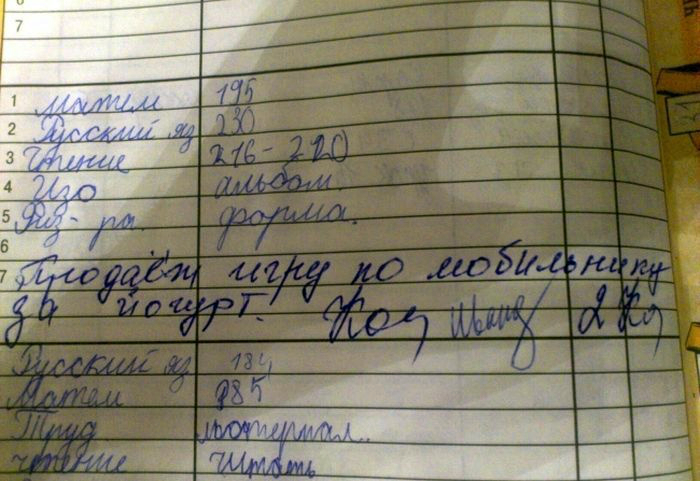 6
7
1 матем 195
2 Русский яз 230
3 Чтение 216-220
4 Изо альбом.
5 Физ-ра. форма.
6
7 Продаёж игру по мобильнику
за йогурт. 2 Кл
Русский яз 184
Матем 985
Труд материал..
чтение читать